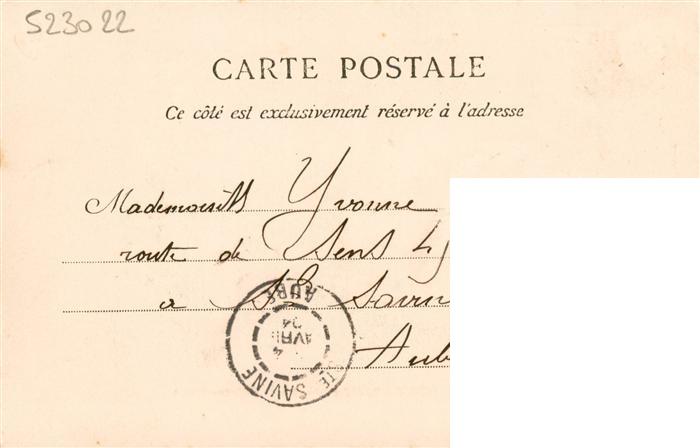 523022
CARTE POSTALE
Ce côté est exclusivement réservé à l'adresse
Mademoiselle Yvonne
route de Sens
a Ste Savin
Aub
STE SAVINE
4
AVRIL
04
AUBE